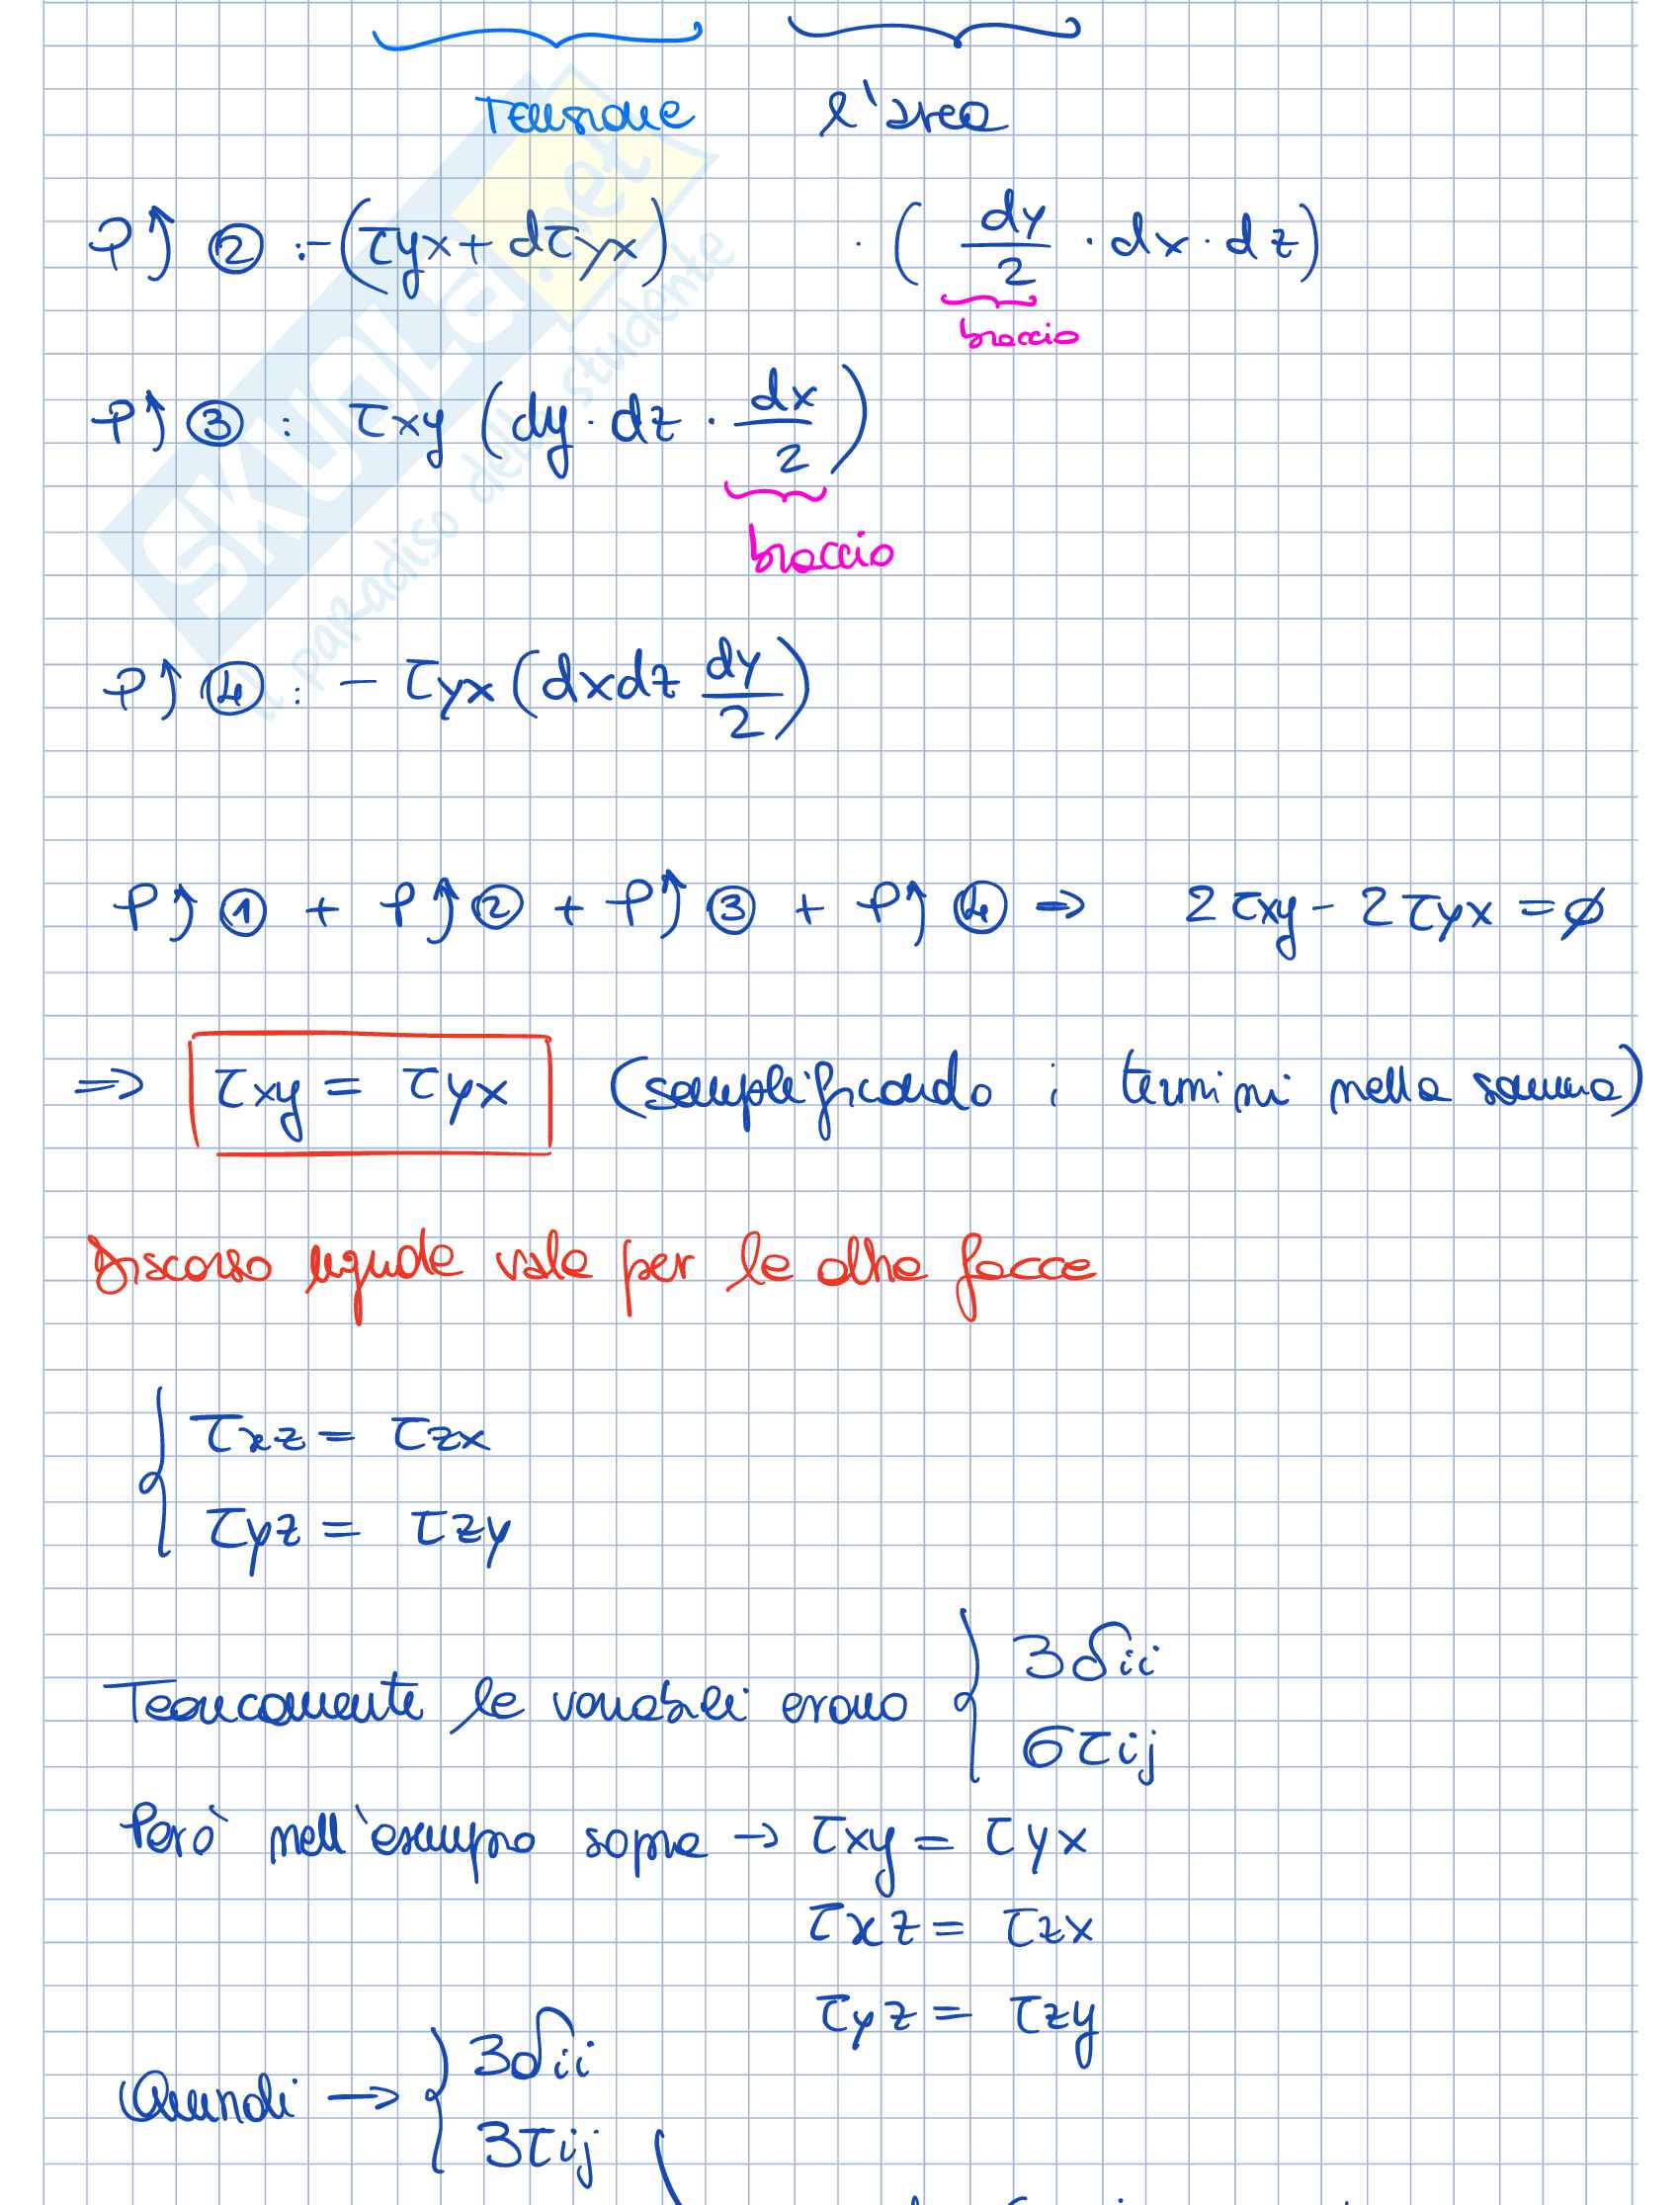 Tensione l'area
P↑ ② : -(τyx + dτyx) · (dy/2 · dx · dz)
braccio
P↑ ③ : τxy (dy · dz · dx/2)
braccio
P↑ ④ : - τyx (dxdz dy/2)
P↑ ① + P↑ ② + P↑ ③ + P↑ ④ => 2τxy - 2τyx = ø
=> τxy = τyx (semplificando i termini nella somma)
Discorso uguale vale per le altre facce
τxz = τzx
τyz = τzy
Teoricamente le variabili erano { 3δii
6τij
Però nell'esempio sopra → τxy = τyx
τxz = τzx
τyz = τzy
Quindi → { 3δii
3τij
SKUOLA.net
il paradiso dello studente